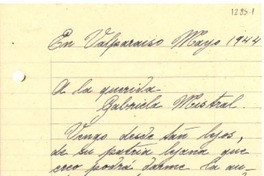 1285-1
En Valparaiso Mayo 1944
A la querida
Gabriela Mistral.
Vengo desde tan lejos,
de su patria lejana que
creo podrá darme la au-